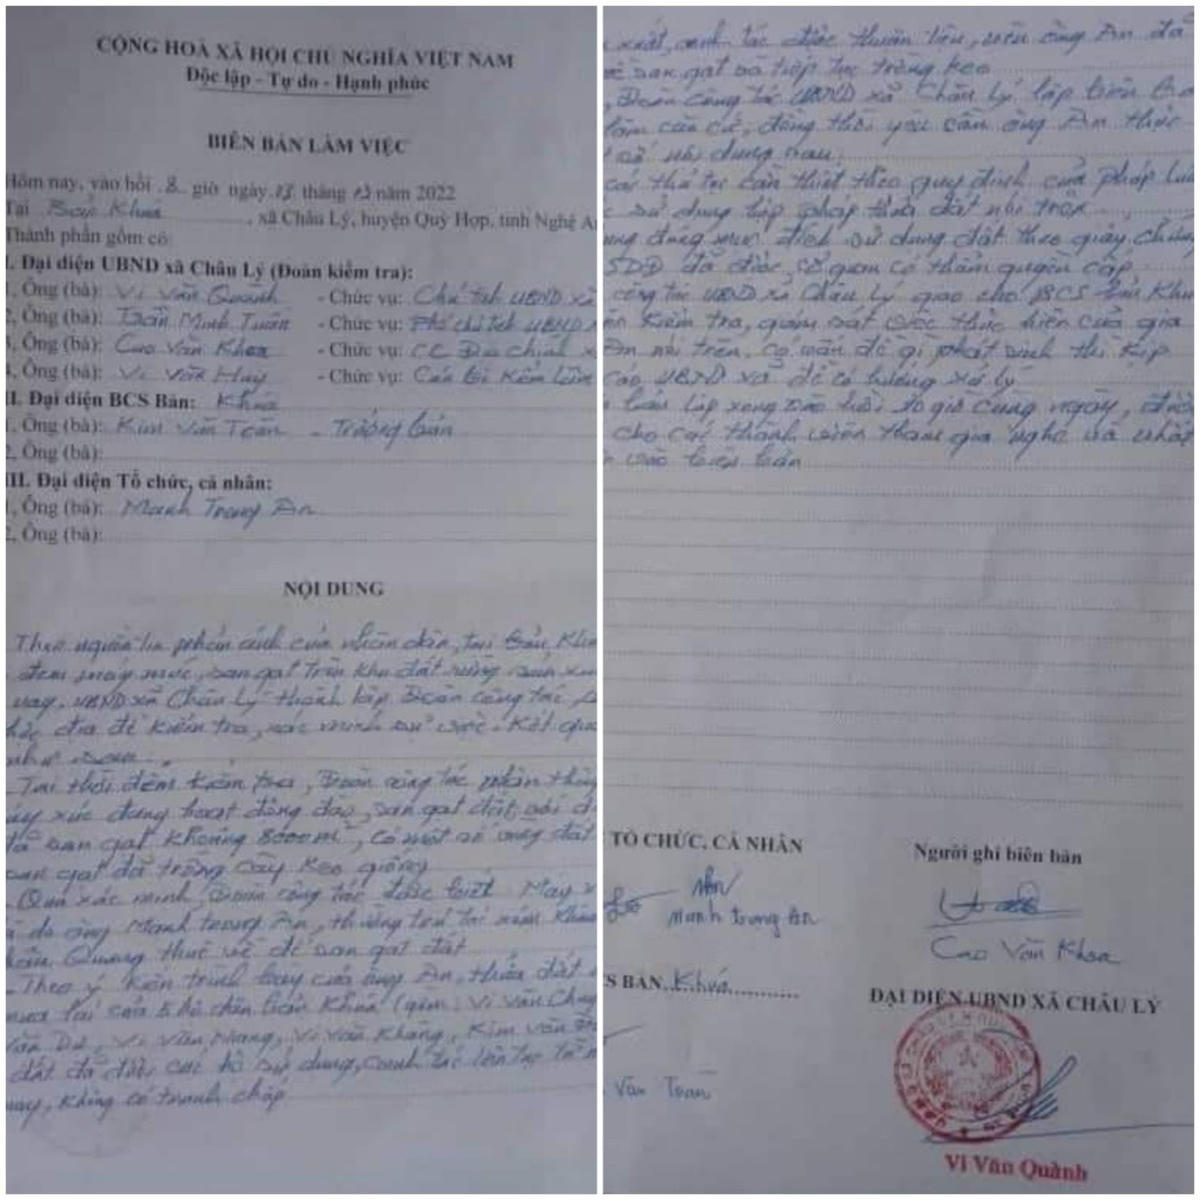 CỘNG HOÀ XÃ HỘI CHỦ NGHĨA VIỆT NAM
Độc lập - Tự do - Hạnh phúc
BIÊN BẢN LÀM VIỆC
Hôm nay, vào hồi 8 giờ ngày tháng năm 2022
Tại Bản Khuá, xã Châu Lý, huyện Quỳ Hợp, tỉnh Nghệ A
Thành phần gồm có:
I. Đại diện UBND xã Châu Lý (Đoàn kiểm tra):
1, Ông (bà): Vi Văn Quành - Chức vụ: Chủ tịch UBND xã
2, Ông (bà): Trần Minh Tuấn - Chức vụ: Phó chủ tịch UBND
3, Ông (bà): Cao Văn Khoa - Chức vụ: CC Địa chính
4, Ông (bà): Vi Văn Huy - Chức vụ: Cán bộ Kiểm lâm
II. Đại diện BCS Bản: Khuá
1, Ông (bà): Kim Văn Toàn - Trưởng bản
2, Ông (bà):
III. Đại diện Tổ chức, cá nhân:
1, Ông (bà): Manh Trong An
2, Ông (bà):
NỘI DUNG
Theo nguồn tin phản ánh của nhân dân, tại bản Khu
đem máy móc, san gạt trên khu đất rừng sản xu
nay, UBND xã Châu Lý thành lập Đoàn công tác,
địa để kiểm tra, xác minh sự việc. Kết quả
như sau:
- Tại thời điểm kiểm tra, Đoàn công tác phát
máy xúc đang hoạt động đào, san gạt đất, với
đã san gạt khoảng 8000m², có một số đất
san gạt đã trồng cây keo giống
- Quá xác minh, Đoàn công tác được biết Máy
do ông Manh trong An, thường trú tại xóm
Châu Quang thuê về để san gạt đất
- Theo ý kiến trình bày của ông An, thửa đất
mua lại của 5 hộ dân bản Khuá (gồm: Vi Văn
Văn Du, Vi Văn Nang, Vi Văn Khăng, Kim Văn
đất đã được các hộ sử dụng, canh tác liên tục từ
nay, không có tranh chấp
xuất, canh tác được thuận tiện, nên ông An đã
về san gạt và tiếp tục trồng keo
, Đoàn công tác UBND xã Châu Lý lập biên bả
làm căn cứ, đồng thời yêu cầu ông An thực
nội dung sau:
các thủ tục cần thiết theo quy định của pháp lu
sử dụng hợp pháp thửa đất nói trên
đúng mục đích sử dụng đất theo giấy chứng
SDĐ đã được cơ quan có thẩm quyền cấp
công tác UBND xã Châu Lý giao cho BCS bản Khu
kiểm tra, giám sát việc thực hiện của gia
An nói trên, có vấn đề gì phát sinh thì kịp
cáo UBND xã để có hướng xử lý
bản lập xong vào hồi 10 giờ cùng ngày, được
cho các thành viên tham gia nghe và nhất
vào biên bản
TỔ CHỨC, CÁ NHÂN
Người ghi biên bản
Manh trong An
Cao Văn Khoa
CS BẢN Khuá
ĐẠI DIỆN UBND XÃ CHÂU LÝ
Văn Toàn
Vi Văn Quành